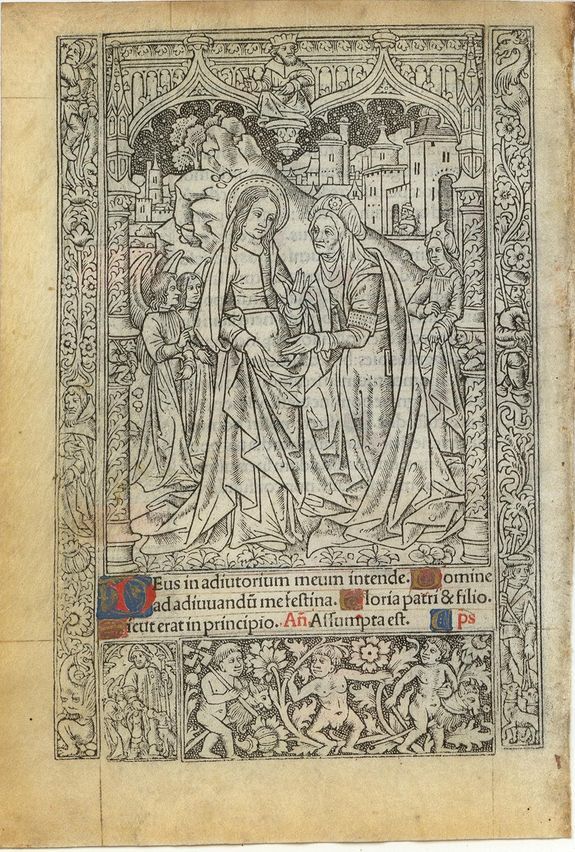 DEus in adiutorium meum intende. Domine
ad adiuuandũ me festina. Gloria patri & filio.
Sicut erat in principio. Añ Assumpta est. ps